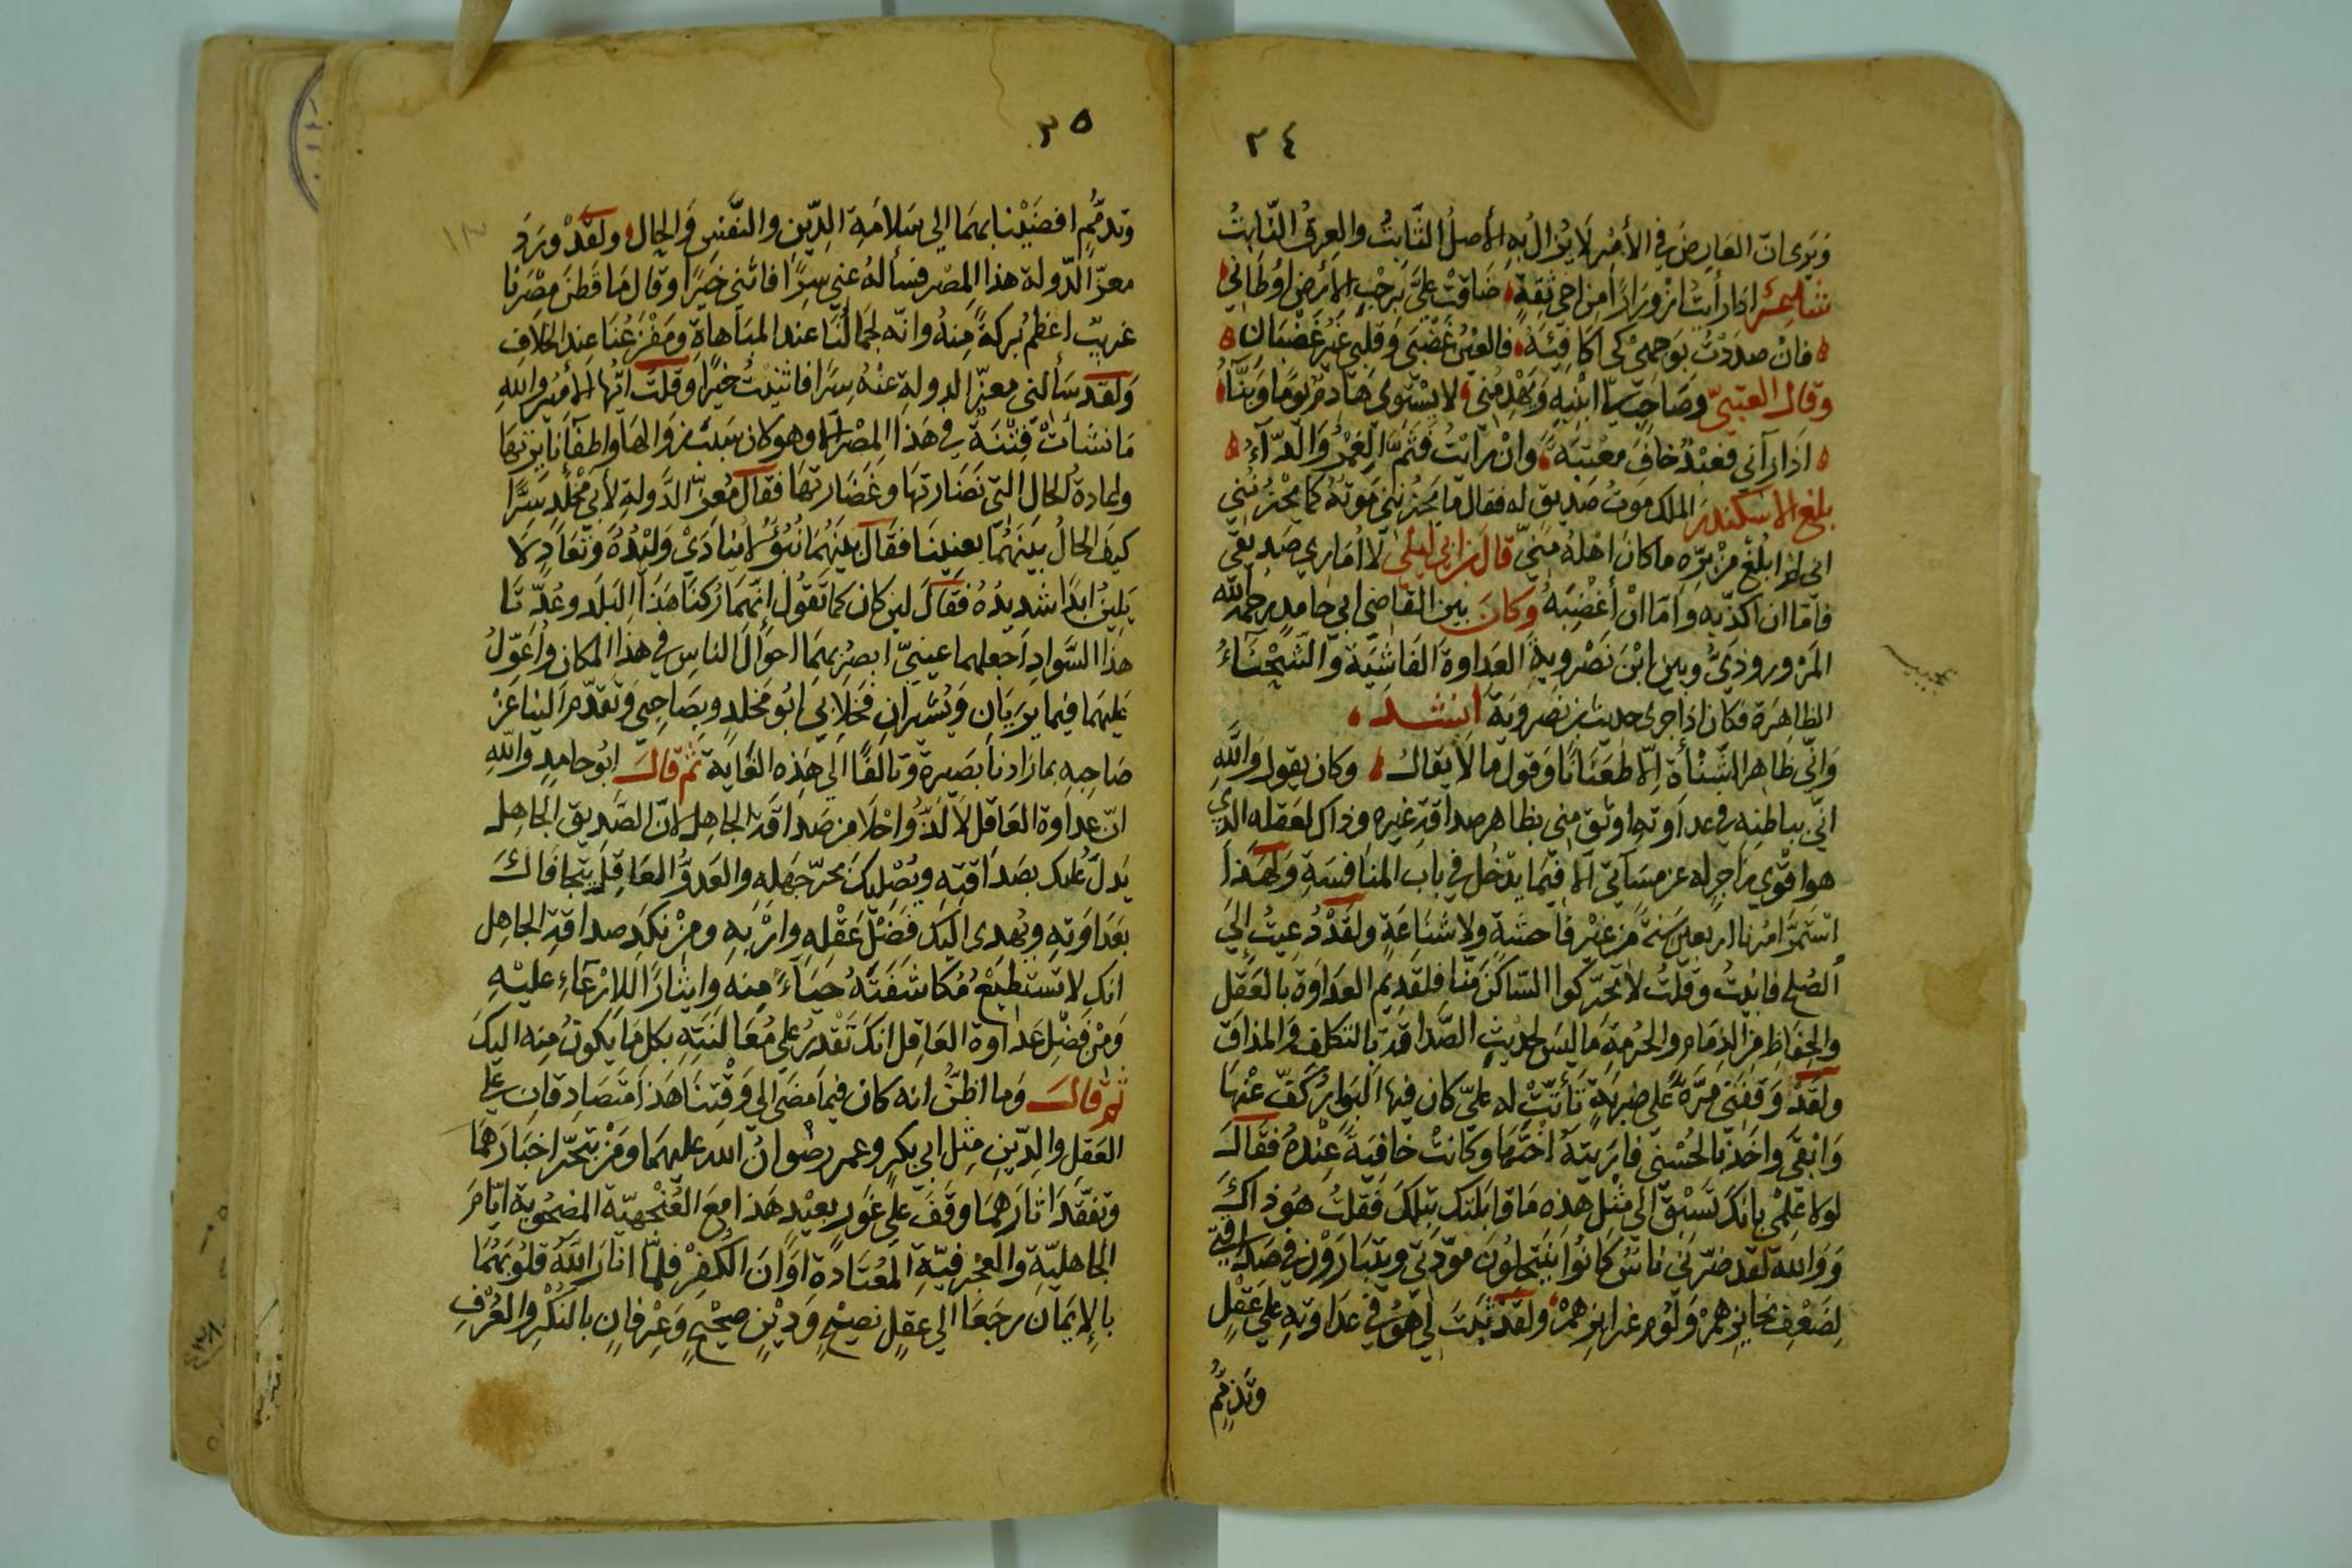 ٣٤
ويرى ان العارض في الأمر لا يزال به الأصل الثابت والعرق النابت
شاعر اذا رأيت ازورارًا من اخي ثقةٍ ضاقت عليَّ برحب الأرض اوطاني
فان صددت بوجهي كي اكافئه فالعين غضبى وقلبي غير غضبان
وقال العتبيّ وصاحب لي ابنيه ويهدمني لا يستوي هادم يومًا وبنّاء
اذا رآني فعبدٌ خاف معتبةً وان نأيت فثمّ الغمز والدّاء
بلغ الاسكندر الملك موت صديق له فقال ما يحزنني موته كما يحزنني
اني لم ابلغ من برّه ما كان اهله منّي قال بن ابي ليلى لا اماري صديقي
فاما ان اكذبه واما ان أغضبه وكان بين القاضي ابي حامد رحمه الله
المروروذي وبين ابن نصرويه العداوة الفاشية والشحناء
الظاهرة فكان اذا جرى حديث بن نصرويه انشد
وانّي ظاهر الشنأة الا طعنانا وقول ما لا يقال وكان يقول والله
انّي بباطنه في عداوته اوثق مني بظاهر صداقة غيره وذاك لعقله الذي
هو اقوى زاجر له عن مساتي الا فيما يدخل في باب المنافسة ولهذا
استمرّ امرنا اربعين سنة من غير فاحشة ولا شناعة ولقد دعيت إلى
الصلح فابيت وقلت لا تحركوا الساكن منّا فلقديم العداوة بالعقل
والحفاظ من الذمام والحرمة ما ليس لحديث الصداقة بالتكلف والمذاق
ولقد وقفني مرّة على ضربة تأتّت له عليّ كان فيها البوار كفّ عنها
وابقى واخذ بالحسنى فاريته اختها وكانت خافية عنده فقال
لولا علمي بانك تسبق الى مثل هذه ما قابلتك بتلك فقلت هو ذاك
ووالله لقد ضرّني ناس كانوا ينتحلون مودّتي ويتبارون في صداقتي
لضعف نحائزهم ولؤم غرائزهم ولقد ثبت لي هو في عداوته على عقل
وتذمّم
٣٥
وتذمّم افضينا بهما الى سلامة الدّين والنفس والحال ولقد ورد
معزّ الدولة هذا المصر فسأله عني سرًا فاثنى خيرًا وقال ما قطن مصرنا
غريب اعظم بركة منه وانه لجمالنا عند المباهاة ومفزعنا عند الخلاف
ولقد سألني معزّ الدولة عنه سرًا فاثنيت خيرا وقلت ايها الأمير والله
ما نشأت فتنة في هذا المصر الا وهو كان سبب زوالها واطفاء نائرتها
واعادة الحال التي نضارتها وغضارتها فقال معزّ الدولة لأبي مخلد سرًّا
كيف الحال بينهما بعينها فقال بينهما نبوّ لا ينادى وليده وتعادٍ لا
يلين ابدًا شديده فقال لين كان كما تقول انهما ركنا هذا البلد وعدّتا
هذا السواد اجعلهما عينيّ ابصر بهما احوال الناس في هذا المكان واعوّل
عليهما فيما يريان ويشيران فخلا بي ابو مخلد وبصاحبي وتقدّم الينا عن
صاحبه بما زادنا بصيرة وتالفًا الى هذه الغاية ثم قال ابو حامد والله
انّ عداوة العاقل لألذّ واحلا من صداقة الجاهل لانّ الصديق الجاهل
يدلّ عليك بصداقته ويصليك بحرّ جهله والعدوّ العاقل يتجافاك
بعداوته ويهدي اليك فضل عقله واربه ومن نكد صداقة الجاهل
انك لا تستطيع مكاشفته حياءً منه وايثارًا للارعاء عليه
ومن فضل عداوة العاقل انك تقدر على مغالبته بكل ما يكون منه اليك
ثم قال وما اظنّ انه كان فيما مضى الى وقتنا هذا متصادقان على
العقل والدّين مثل ابي بكر وعمر رضوان الله عليهما ومن يتحرّ اخبارهما
وتفقّد اثارهما وقف على غور بعيد هذا مع العنجهيّة المصحوبة ايام
الجاهليّة والعجرفيّة المعتادة اوان الكفر فلما انار الله قلوبهما
بالإيمان رجعا الى عقل نصيح ودين صحيح وعرفان بالنكر والعرف